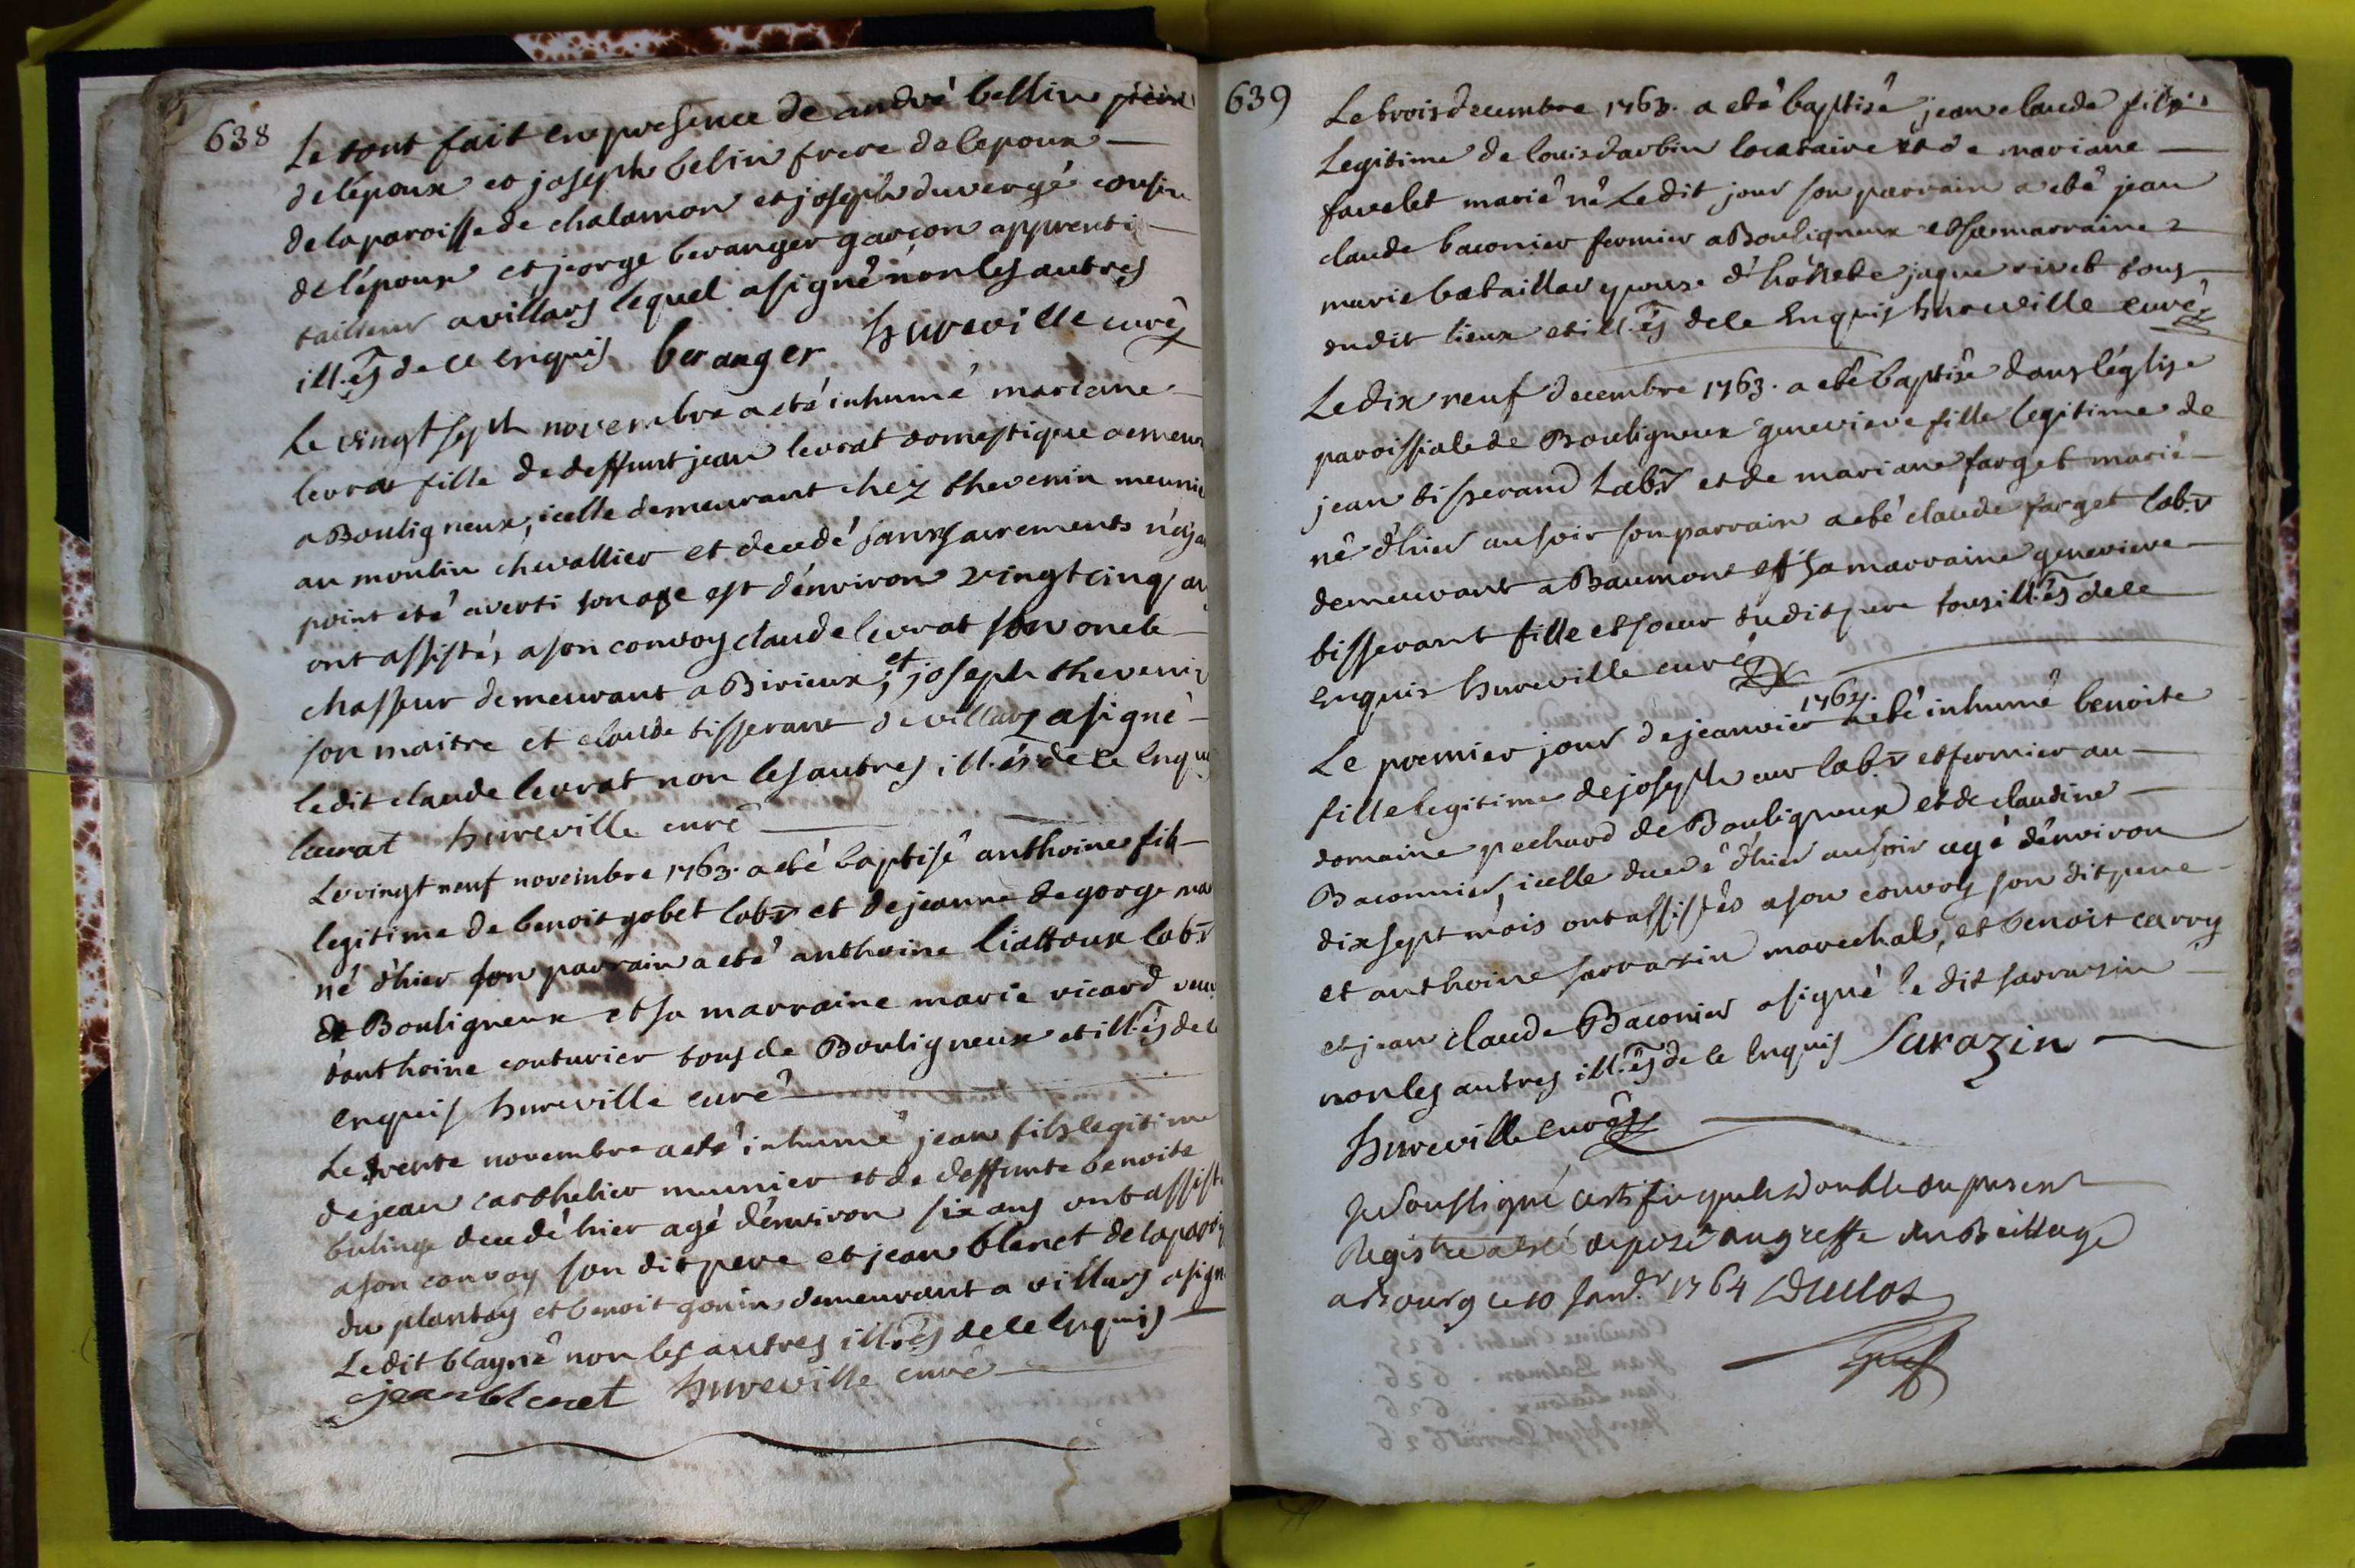 638
Le tout fait en presence de andré bellin
de lépoux et joseph belin frere de lepoux
de la paroisse de chalamon et joseph duvergé cousin
de lépoux et jeorge beranger garçon apprenti
tailleur a villars lequel a signé non les autres
ill.es de ce enquis beranger hureville curé
Le vingt sept novembre a eté inhumé mariane
levrat fille de deffunt jean levrat domestique demeur
a Bouligneux, icelle demeurant chez thevenin meunie
au moulin chevallier et decedé sans sacrements n'éya
point eté averti son age est d'environ vingt cinq an
ont assistés a son convoy claude levrat son oncle
chasseur demeurant a Birieux, et joseph thevenin
son maitre et claude tisserant de villars a signé
le dit claude levrat non les autres ill.és de ce enquis
levrat hureville curé
Le vingt neuf novembre 1763. a eté baptisé anthoine fils
legitime de benoit gobet labr et de jeanne degorge ma
né d'hier son parrain a eté anthoine liattoux labr
de Bouligneux et sa marraine marie ricard veuv
danthoine couturier tous de Bouligneux et ill.és de ce
enquis hureville curé
Le trente novembre a eté inhumé jean fils legitime
de jean carthelier meunier et de deffunte benoite
bulinge decedé hier agé d'environ six ans ont assisté
a son convoy son dit pere et jean blenet de la parois
du plantay et benoit gonin demeurant a villars a signé
Le dit blayné non les autres ill.és de ce enquis
jean blenet hureville curé
639
Le trois decembre 1763. a eté baptisé jean claude fils
Legitime de louis darbin locataire et de mariane
favelet marié né Le dit jour son parrain a eté jean
claude baconier fermier a Bouligneux et sa marraine
marie bataillar epouse d'hónete jaque rivet tous
du dit lieux et ill.és de ce Enquis hureville curé
Le dix neuf decembre 1763. a eté baptisé dans léglise
paroissiale de Bouligneux genevieve fille legitime de
jean tisserand Labr et de mariane farget marié
né d'hier au soir son parrain a eté claude farget labr
demeurant a Baumont et sa marraine genevieve
tisserant fille et soeur du dit pere tous ill.és de ce
enquis hureville curé
1764.
Le premier jour de jeanvier a eté inhumé benoite
fille legitime de joseph cur labr et fermier au
domaine pechard de Bouligneux et de claudine
Baconnier, icelle decedé d'hier au soir agé d'environ
dix sept mois ont assistés a son convoy son dit pere
et anthoine sarrazin marechal, et benoit carry
et jean claude Baconier a signé le dit sarrasin
non les autres ill.és de ce enquis Sarazin
hureville curé
Je soussigné certifie que le double du present
Registre a esté deposé au greffe du Baillage
a Bourg ce 10 Janv.r 1764 Duclos